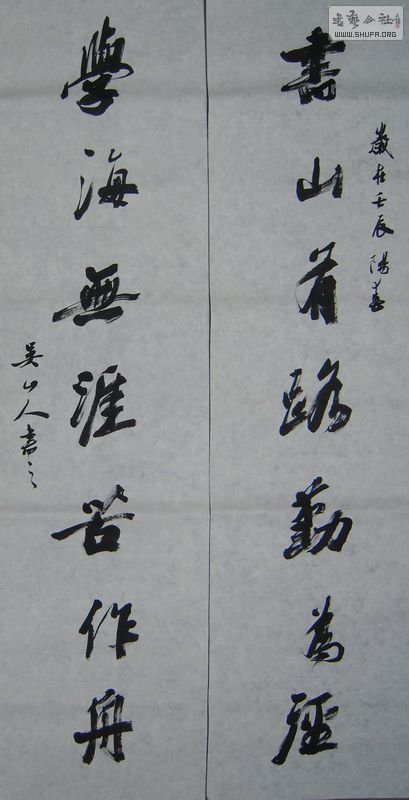 歲在壬辰陽春
書山有路勤為徑
學海無涯苦作舟
吴山人書之
書藝公社
WWW.SHUFA.ORG